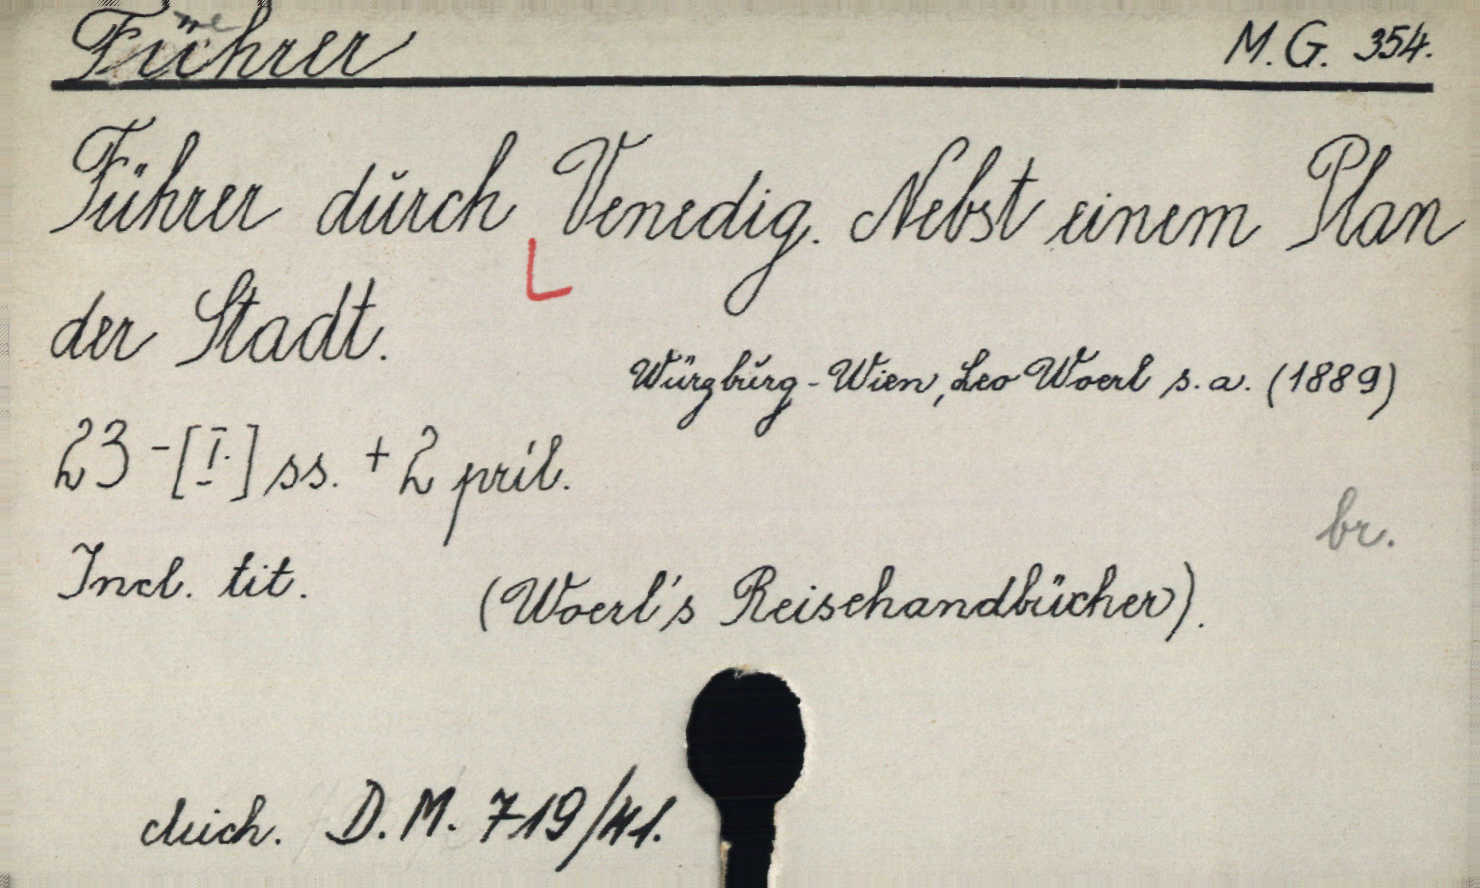 Führer M. G. 354.
Führer durch Venedig. Nebst einem Plan
der Stadt.
Würzburg - Wien, Leo Woerl s. a. (1889)
23 - [I.] ss. + 2 pril.
br.
Incl. tit. (Woerl's Reisehandbücher).
D. M. 719/41.